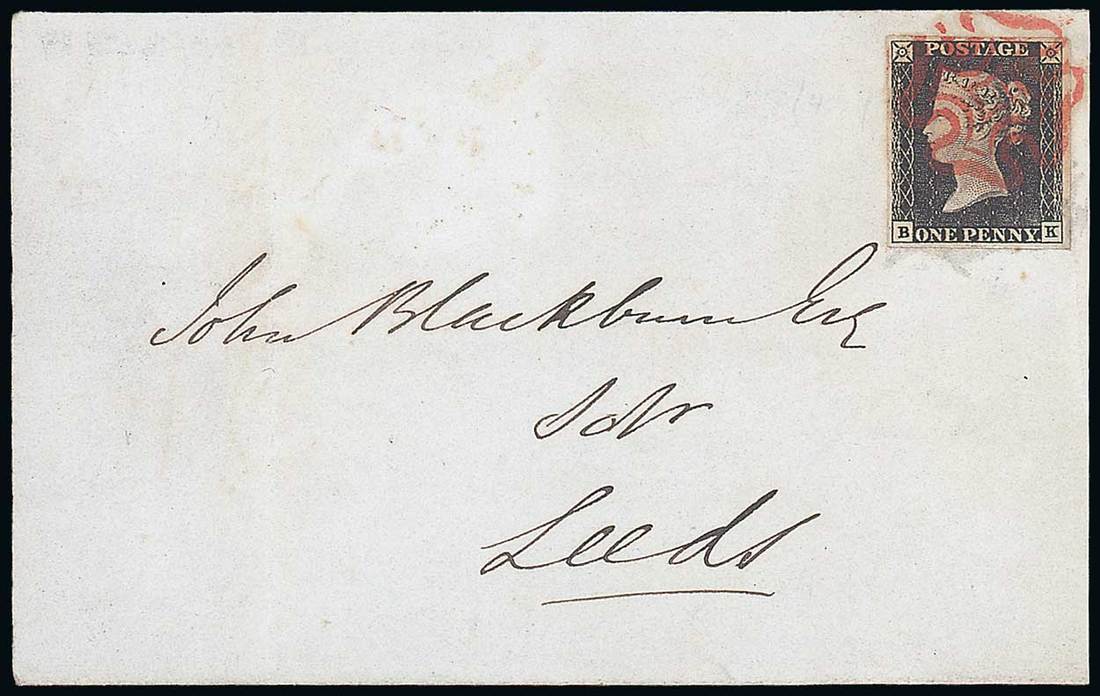 POSTAGE
B ONE PENNY K
John Blackburn Esq
Solr
Leeds